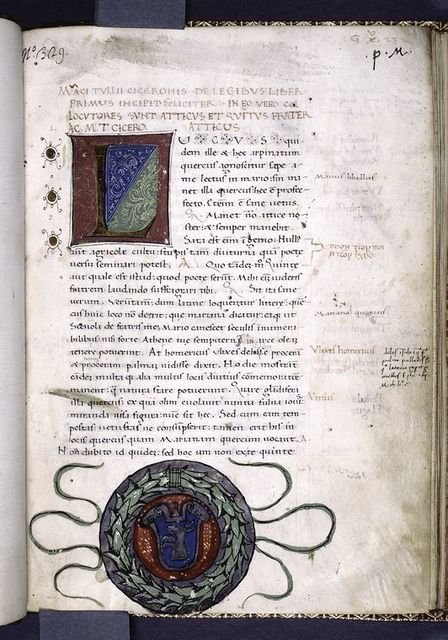 Nº. 329.
p. M.
MARCI TVLLII CICERONIS DE LEGIBVS LIBER
PRIMVS INCIPIT FELICITER IN EO VERO COL
LOCVTORES SVNT ATTICVS ET QVINTVS FRATER
AC M.T. CICERO. ATTICVS
LVCVS qui
dem ille & hec arpinatum
quercus agnoscitur sepe a
me lectus in mario: sin ma
net illa quercus hec e profec
to. Etenim e sane vetus.
Q. Manet vero attice no
ster: & semper manebit.
Sata est enim ingenio: Nulli
aut agricole cultu stirps tam diuturna quā poete
versu seminari potest. A. Quo tandē m̄ Quinte
aut quale est istud: quod poete serunt. Mihi em̄ videris
fratrem laudando suffragari tibi. Q. Sit ita sane
verum. Verūtam̄: dum latine loquentur littere: quer
cus huic loco nō deerit: que mariana dicatur: eaq̄ ut
Scevola de fratris mei Mario canescet seculis innumera
bilibus: nisi forte Athene tue sempiternā in arce oleā
tenere potuerunt. Aut homericus Vlyxes
& procerā & palmā vidisse dixit. Hodie monstrāt
eadem: multa q̄ alia multis locis diutius commemoratione
manent: q̄ natura stare potuerunt. Quare glādifera
illa quercus: ex qua olim evolavit nuntia fulva iovis
miranda visa figura: nunc sit hec. Sed cum eam tem
pestas vetustas ve consumpserit: tamen erit his in
locis quercus quam Marianam quercum vocant. A
Non dubito id quidē: sed hoc iam non ex te quinte
Marius libellus
Mariana quercus
Vlyxes homericus
Versus